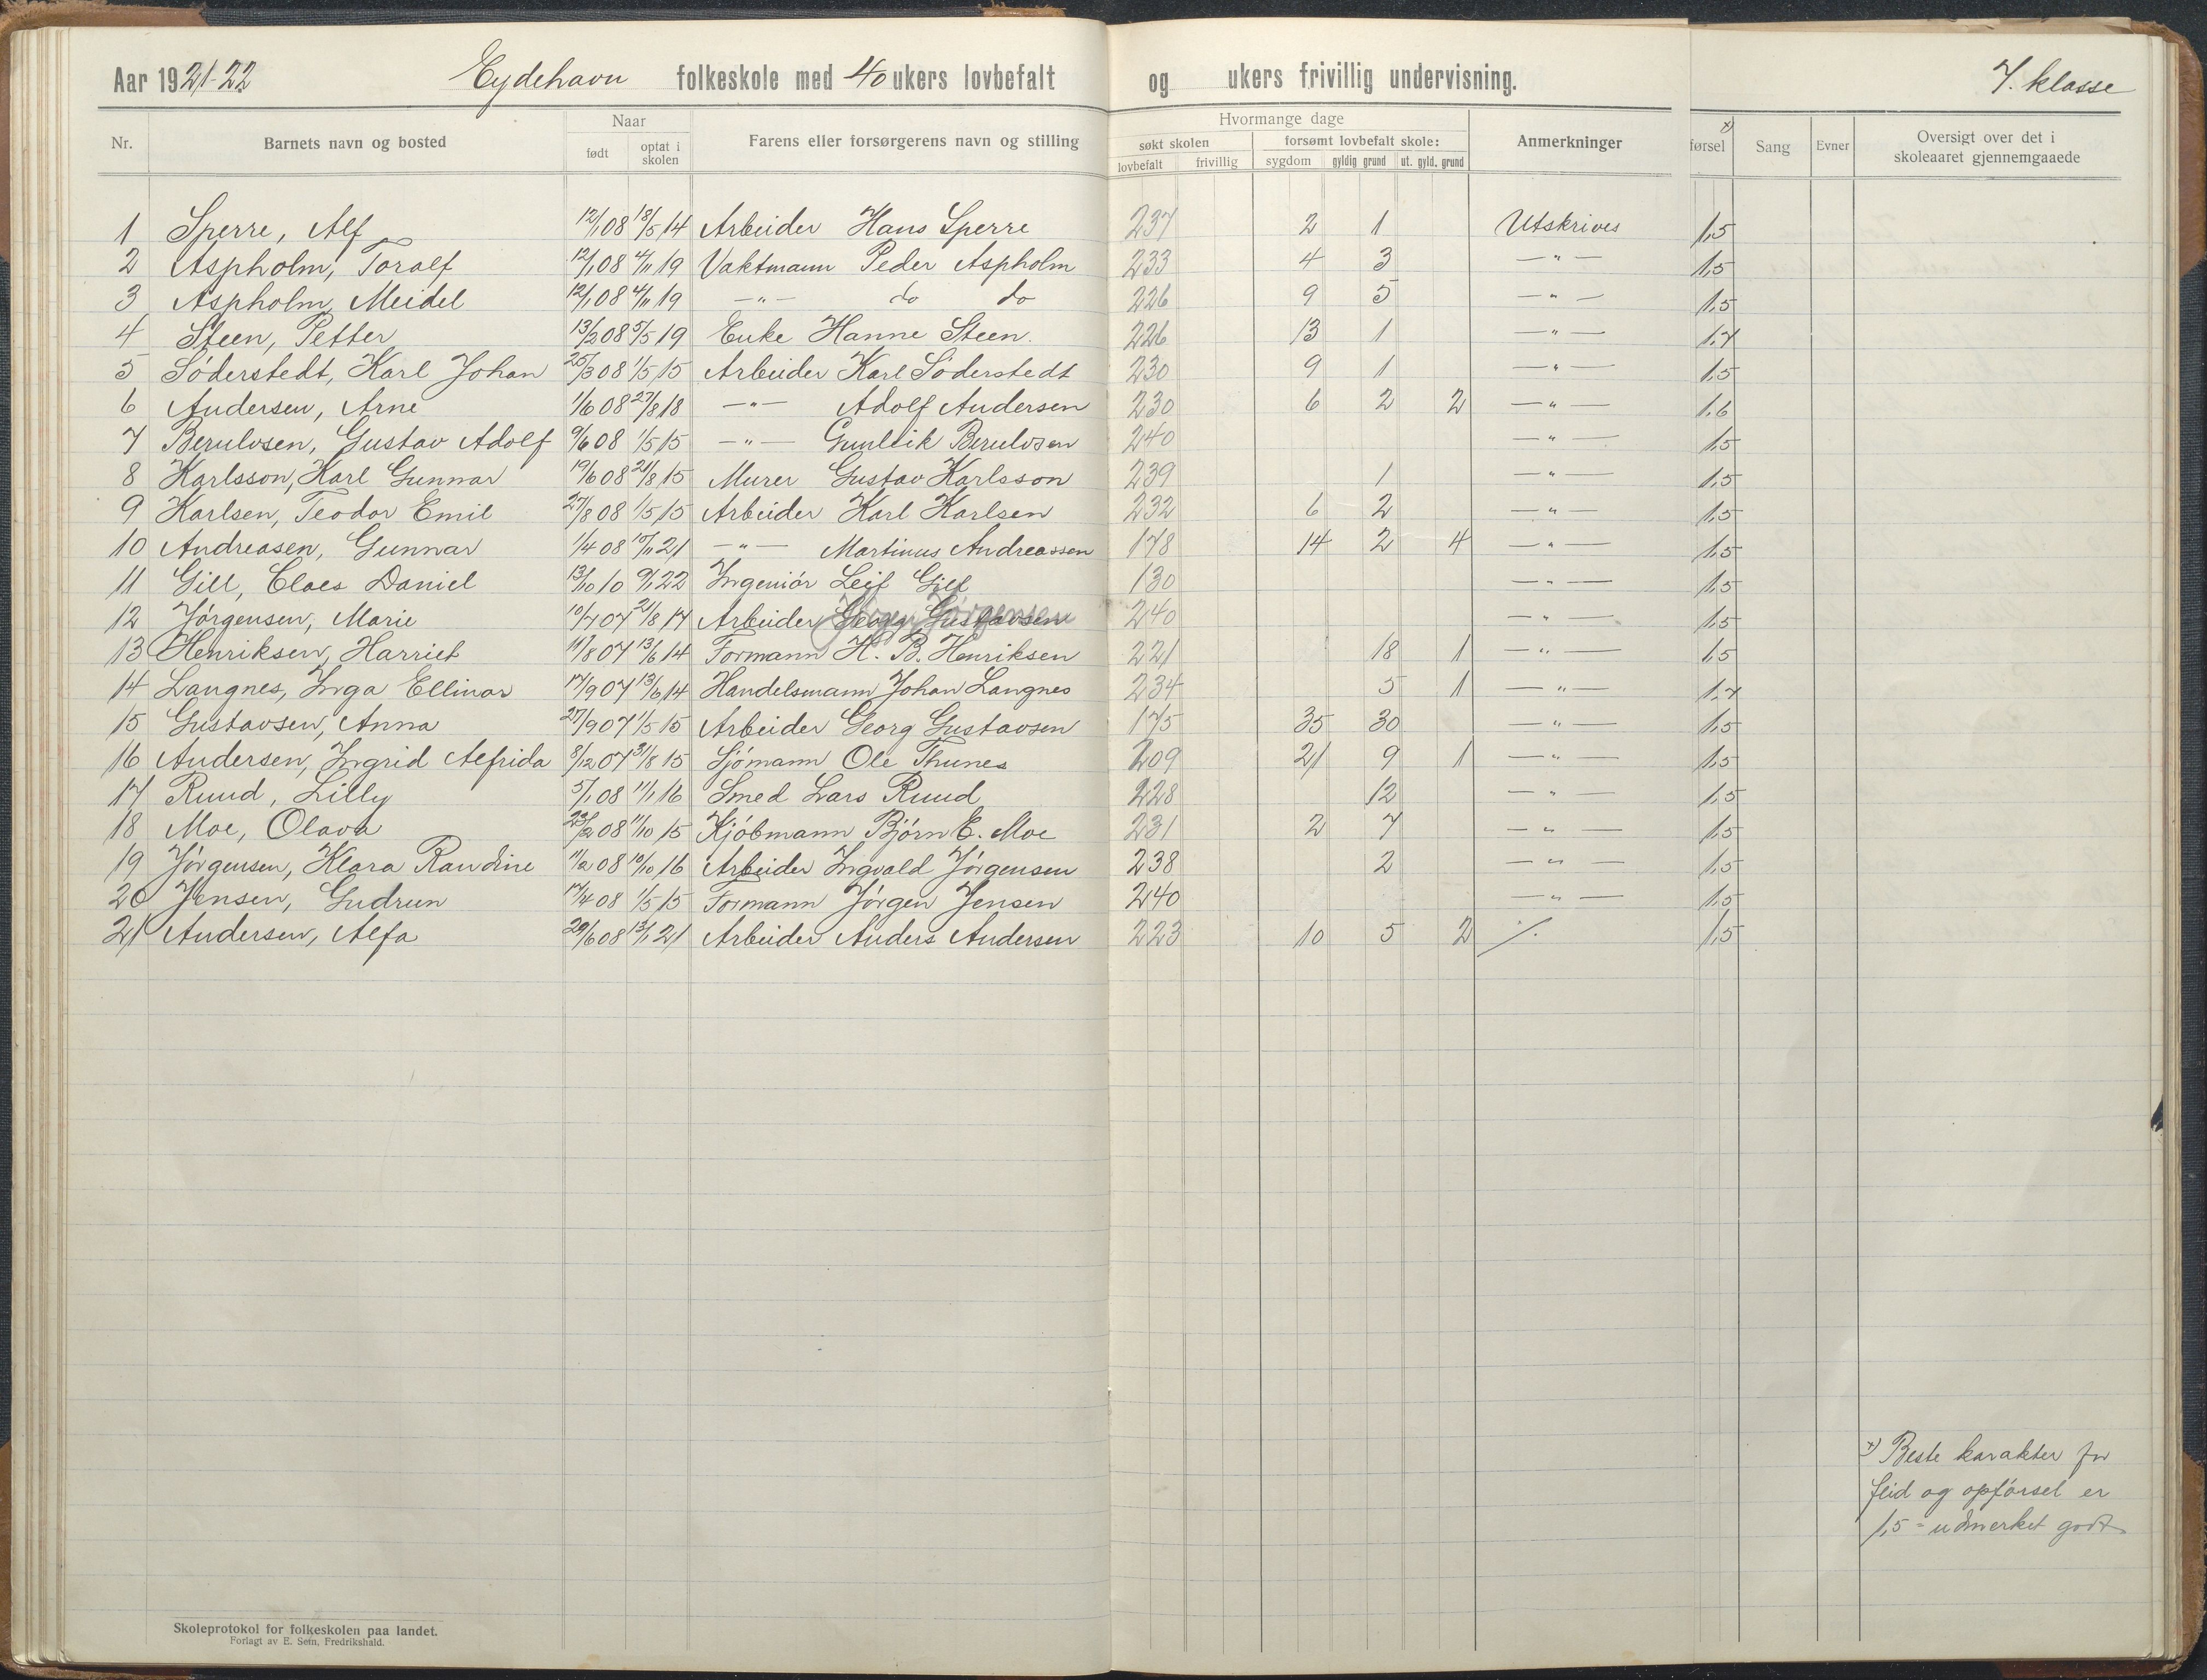 Aar 1921-22 Eydehavn folkeskole med 40 ukers lovbefalt og ukers frivillig undervisning. 7. klasse
Nr. Barnets navn og bosted Naar født optat i skolen Farens eller forsørgerens navn og stilling Hvormange dage søkt skolen lovbefalt frivillig forsømt lovbefalt skole: sygdom gyldig grund ut. gyld. grund Anmerkninger førsel x) Sang Evner Oversigt over det i skoleaaret gjennemgaaede
1 Sperre, Alf 12/1 08 18/5 14 Arbeider Hans Sperre 237 2 1 Utskrives 1,5
2 Aspholm, Toralf 12/1 08 4/11 19 Vaktmann Peder Aspholm 233 4 3 —"— 1,5
3 Aspholm, Meidel 12/1 08 4/11 19 —"— do do 226 9 5 —"— 1,5
4 Steen, Petter 13/2 08 5/5 19 Enke Hanne Steen. 226 13 1 —"— 1,7
5 Söderstedt, Karl Johan 25/3 08 1/5 15 Arbeider Karl Söderstedt 230 9 1 —"— 1,5
6 Andersen, Arne 1/6 08 27/8 18 —"— Adolf Andersen 230 6 2 2 —"— 1,6
7 Berulvsen, Gustav Adolf 9/6 08 1/5 15 —"— Gunleik Berulvsen 240 —"— 1,5
8 Karlsson, Karl Gunnar 19/6 08 21/8 15 Murer Gustav Karlsson 239 1 —"— 1,5
9 Karlsen, Teodor Emil 27/8 08 1/5 15 Arbeider Karl Karlsen 232 6 2 —"— 1,5
10 Andreasen, Gunnar 1/4 08 15/11 21 —"— Martinus Andreassen 178 14 2 4 —"— 1,5
11 Gill, Claes Daniel 13/10 10 9/1 22 Ingeniör Leif Gill 130 —"— 1,5
12 Jörgensen, Marie 10/7 07 21/8 17 Arbeider Georg Gustavsen Jörgen Jörgensen 240 —"— 1,5
13 Henriksen, Harriet 11/8 07 13/6 14 Formann H. B. Henriksen 221 18 1 —"— 1,5
14 Langnes, Inga Ellinor 17/9 07 13/6 14 Handelsmann Johan Langnes 234 5 1 —"— 1,7
15 Gustavsen, Anna 27/9 07 1/5 15 Arbeider Georg Gustavsen 175 35 30 —"— 1,5
16 Andersen, Ingrid Alfrida 8/12 07 31/8 15 Sjömann Ole Thunes 209 21 9 1 —"— 1,5
17 Ruud, Lilly 5/1 08 11/1 16 Smed Lars Ruud 228 12 —"— 1,5
18 Moe, Olava 23/2 08 11/10 15 Kjöbmann Björn E. Moe 231 2 7 —"— 1,5
19 Jörgensen, Klara Randine 11/2 08 10/10 16 Arbeider Ingvald Jörgensen 238 2 —"— 1,5
20 Jensen, Gudrun 17/4 08 1/5 15 Formann Jörgen Jensen 240 —"— 1,5
21 Andersen, Alfa 29/6 08 13/1 21 Arbeider Anders Andersen 223 10 5 2 ./. 1,5
x) Beste karakter for
flid og opförsel er
1,5 = udmerket godt
Skoleprotokol for folkeskolen paa landet.
Forlagt av E. Sem, Fredrikshald.